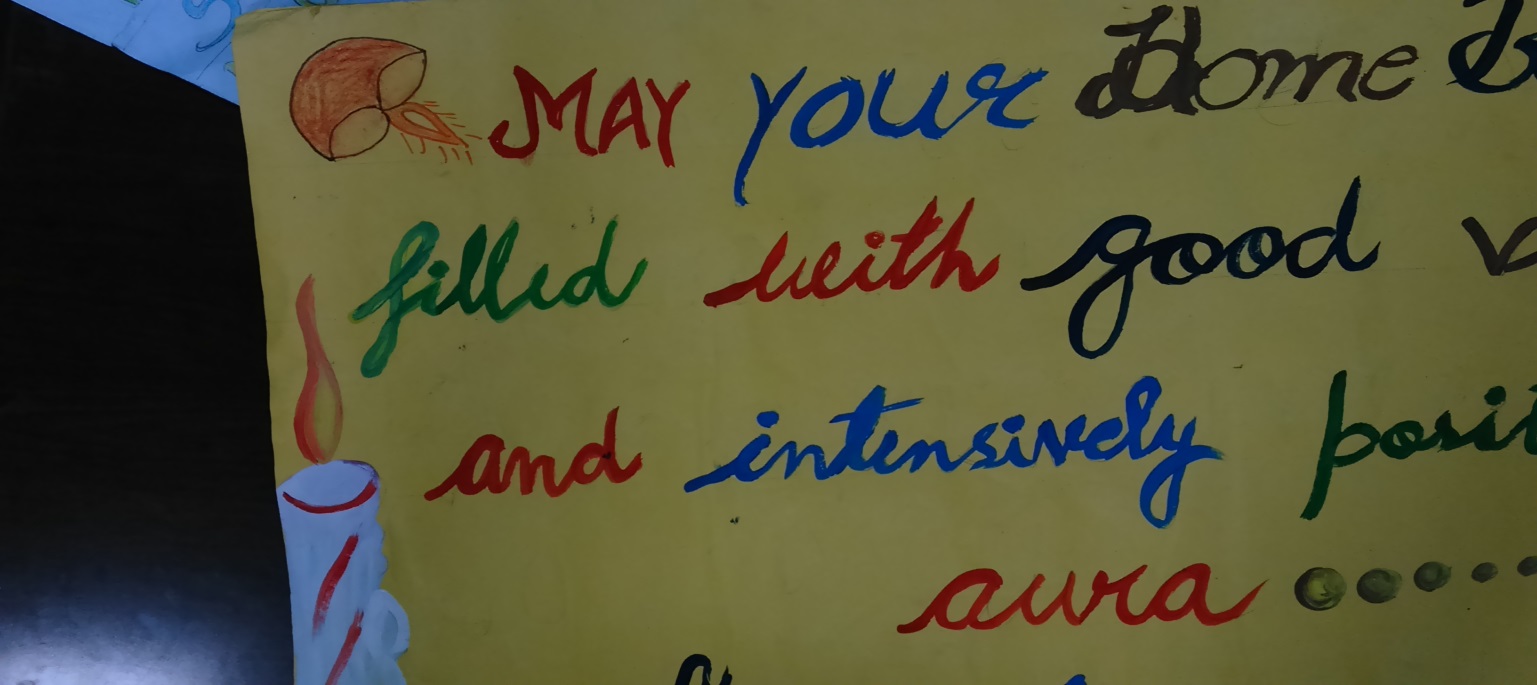 MAY your Home
filled with good
and intensively posit
aura